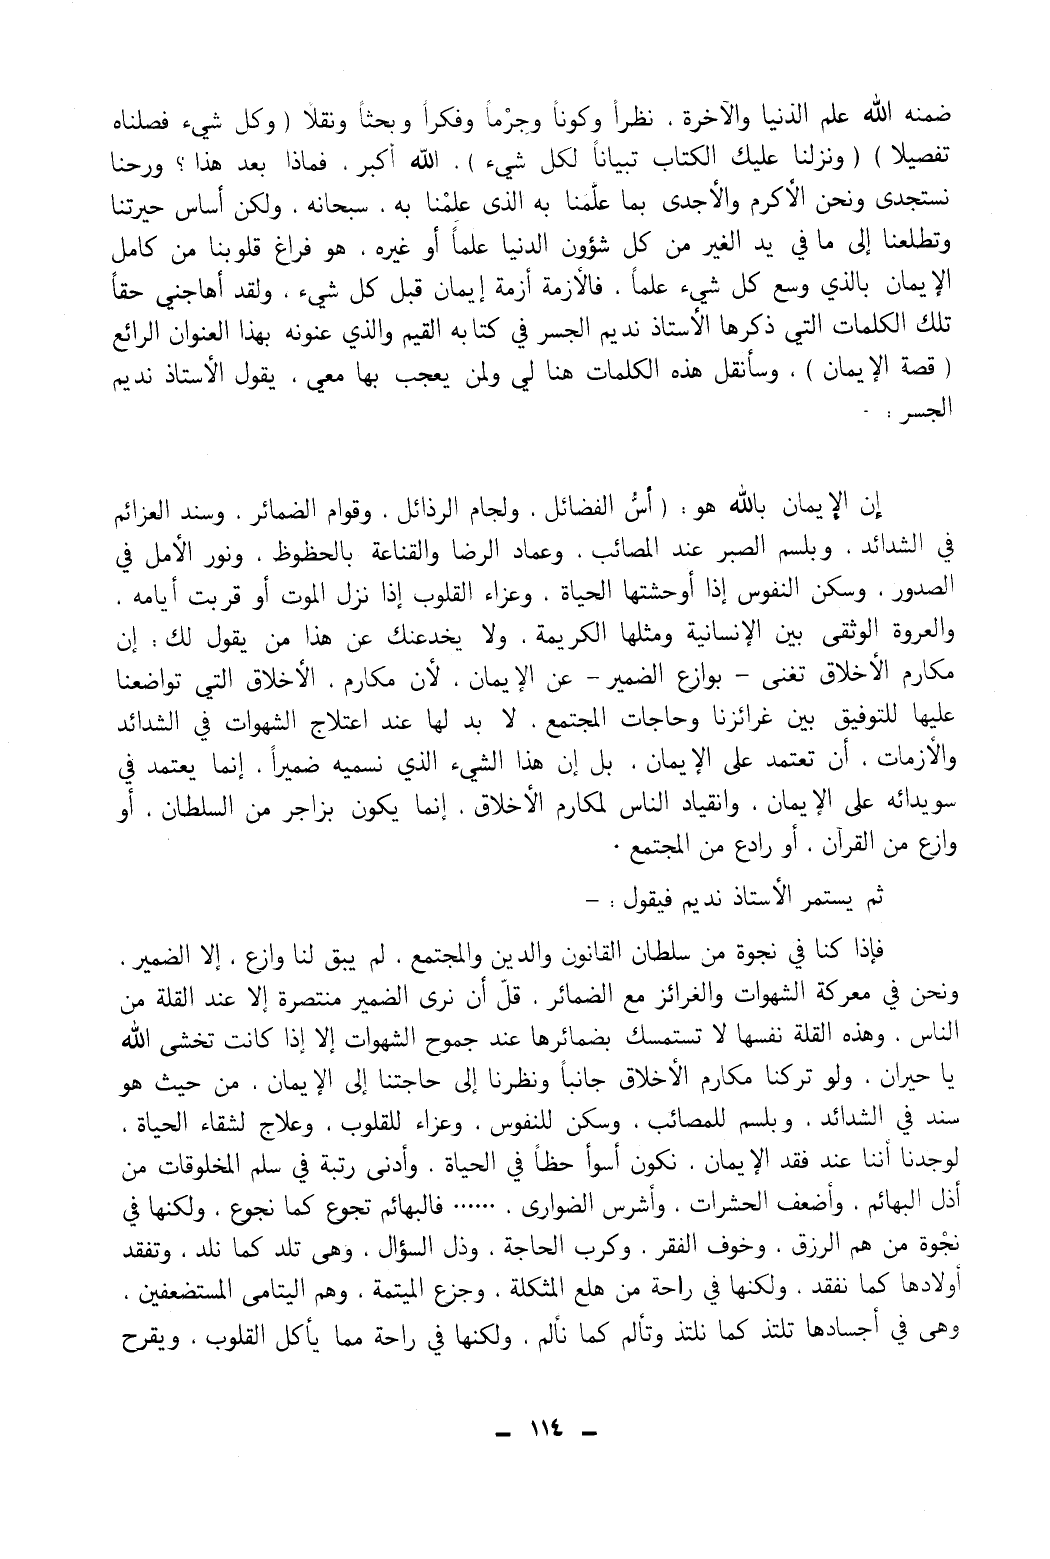 ضمنه الله علم الدنيا والآخرة ، نظراً وكوناً وجرْماً وفكراً وبحثاً ونقلاً ( وكل شيء فصلناه
تفصيلا ) ( ونزلنا عليك الكتاب تبياناً لكل شيء ) . الله أكبر ، فماذا بعد هذا ؟ ورحنا
نستجدى ونحن الأكرم والأجدى بما علّمنا به الذى علِمْنا به ، سبحانه ، ولكن أساس حيرتنا
وتطلعنا إلى ما في يد الغير من كل شؤون الدنيا علماً أو غيره ، هو فراغ قلوبنا من كامل
الإيمان بالذي وسع كل شيء علماً ، فالأزمة أزمة إيمان قبل كل شيء ، ولقد أهاجني حقاً
تلك الكلمات التي ذكرها الأستاذ نديم الجسر في كتابه القيم والذي عنونه بهذا العنوان الرائع
( قصة الإيمان ) ، وسأنقل هذه الكلمات هنا لي ولمن يعجب بها معي ، يقول الأستاذ نديم
الجسر : -
إن الإيمان بالله هو : ( أسُّ الفضائل ، ولجام الرذائل ، وقوام الضمائر ، وسند العزائم
في الشدائد ، وبلسم الصبر عند المصائب ، وعماد الرضا والقناعة بالحظوظ ، ونور الأمل في
الصدور ، وسكن النفوس إذا أوحشتها الحياة ، وعزاء القلوب إذا نزل الموت أو قربت أيامه ،
والعروة الوثقى بين الإنسانية ومثلها الكريمة ، ولا يخدعنك عن هذا من يقول لك : إن
مكارم الأخلاق تغنى – بوازع الضمير – عن الإيمان ، لأن مكارم ، الأخلاق التي تواضعنا
عليها للتوفيق بين غرائزنا وحاجات المجتمع ، لا بد لها عند اعتلاج الشهوات في الشدائد
والأزمات ، أن تعتمد على الإيمان ، بل إن هذا الشيء الذي نسميه ضميراً ، إنما يعتمد في
سويدائه على الإيمان ، وانقياد الناس لمكارم الأخلاق ، إنما يكون بزاجر من السلطان ، أو
وازع من القرآن ، أو رادع من المجتمع .
ثم يستمر الأستاذ نديم فيقول : –
فإذا كنا في نجوة من سلطان القانون والدين والمجتمع ، لم يبق لنا وازع ، إلا الضمير ،
ونحن في معركة الشهوات والغرائز مع الضمائر ، قلّ أن نرى الضمير منتصرة إلا عند القلة من
الناس ، وهذه القلة نفسها لا تستمسك بضمائرها عند جموح الشهوات إلا إذا كانت تخشى الله
يا حيران ، ولو تركنا مكارم الأخلاق جانباً ونظرنا إلى حاجتنا إلى الإيمان ، من حيث هو
سند في الشدائد ، وبلسم للمصائب ، وسكن للنفوس ، وعزاء للقلوب ، وعلاج لشقاء الحياة ،
لوجدنا أننا عند فقد الإيمان ، نكون أسوأ حظاً في الحياة ، وأدنى رتبة في سلم المخلوقات من
أذل البهائم ، وأضعف الحشرات ، وأشرس الضوارى ، ...... فالبهائم تجوع كما نجوع ، ولكنها في
نجْوة من هم الرزق ، وخوف الفقر ، وكرب الحاجة ، وذل السؤال ، وهى تلد كما نلد ، وتفقد
أولادها كما نفقد ، ولكنها في راحة من هلع المثكلة ، وجزع الميتمة ، وهم اليتامى المستضعفين ،
وهى في أجسادها تلتذ كما نلتذ وتألم كما نألم ، ولكنها في راحة مما يأكل القلوب ، ويقرح
– ١١٤ –